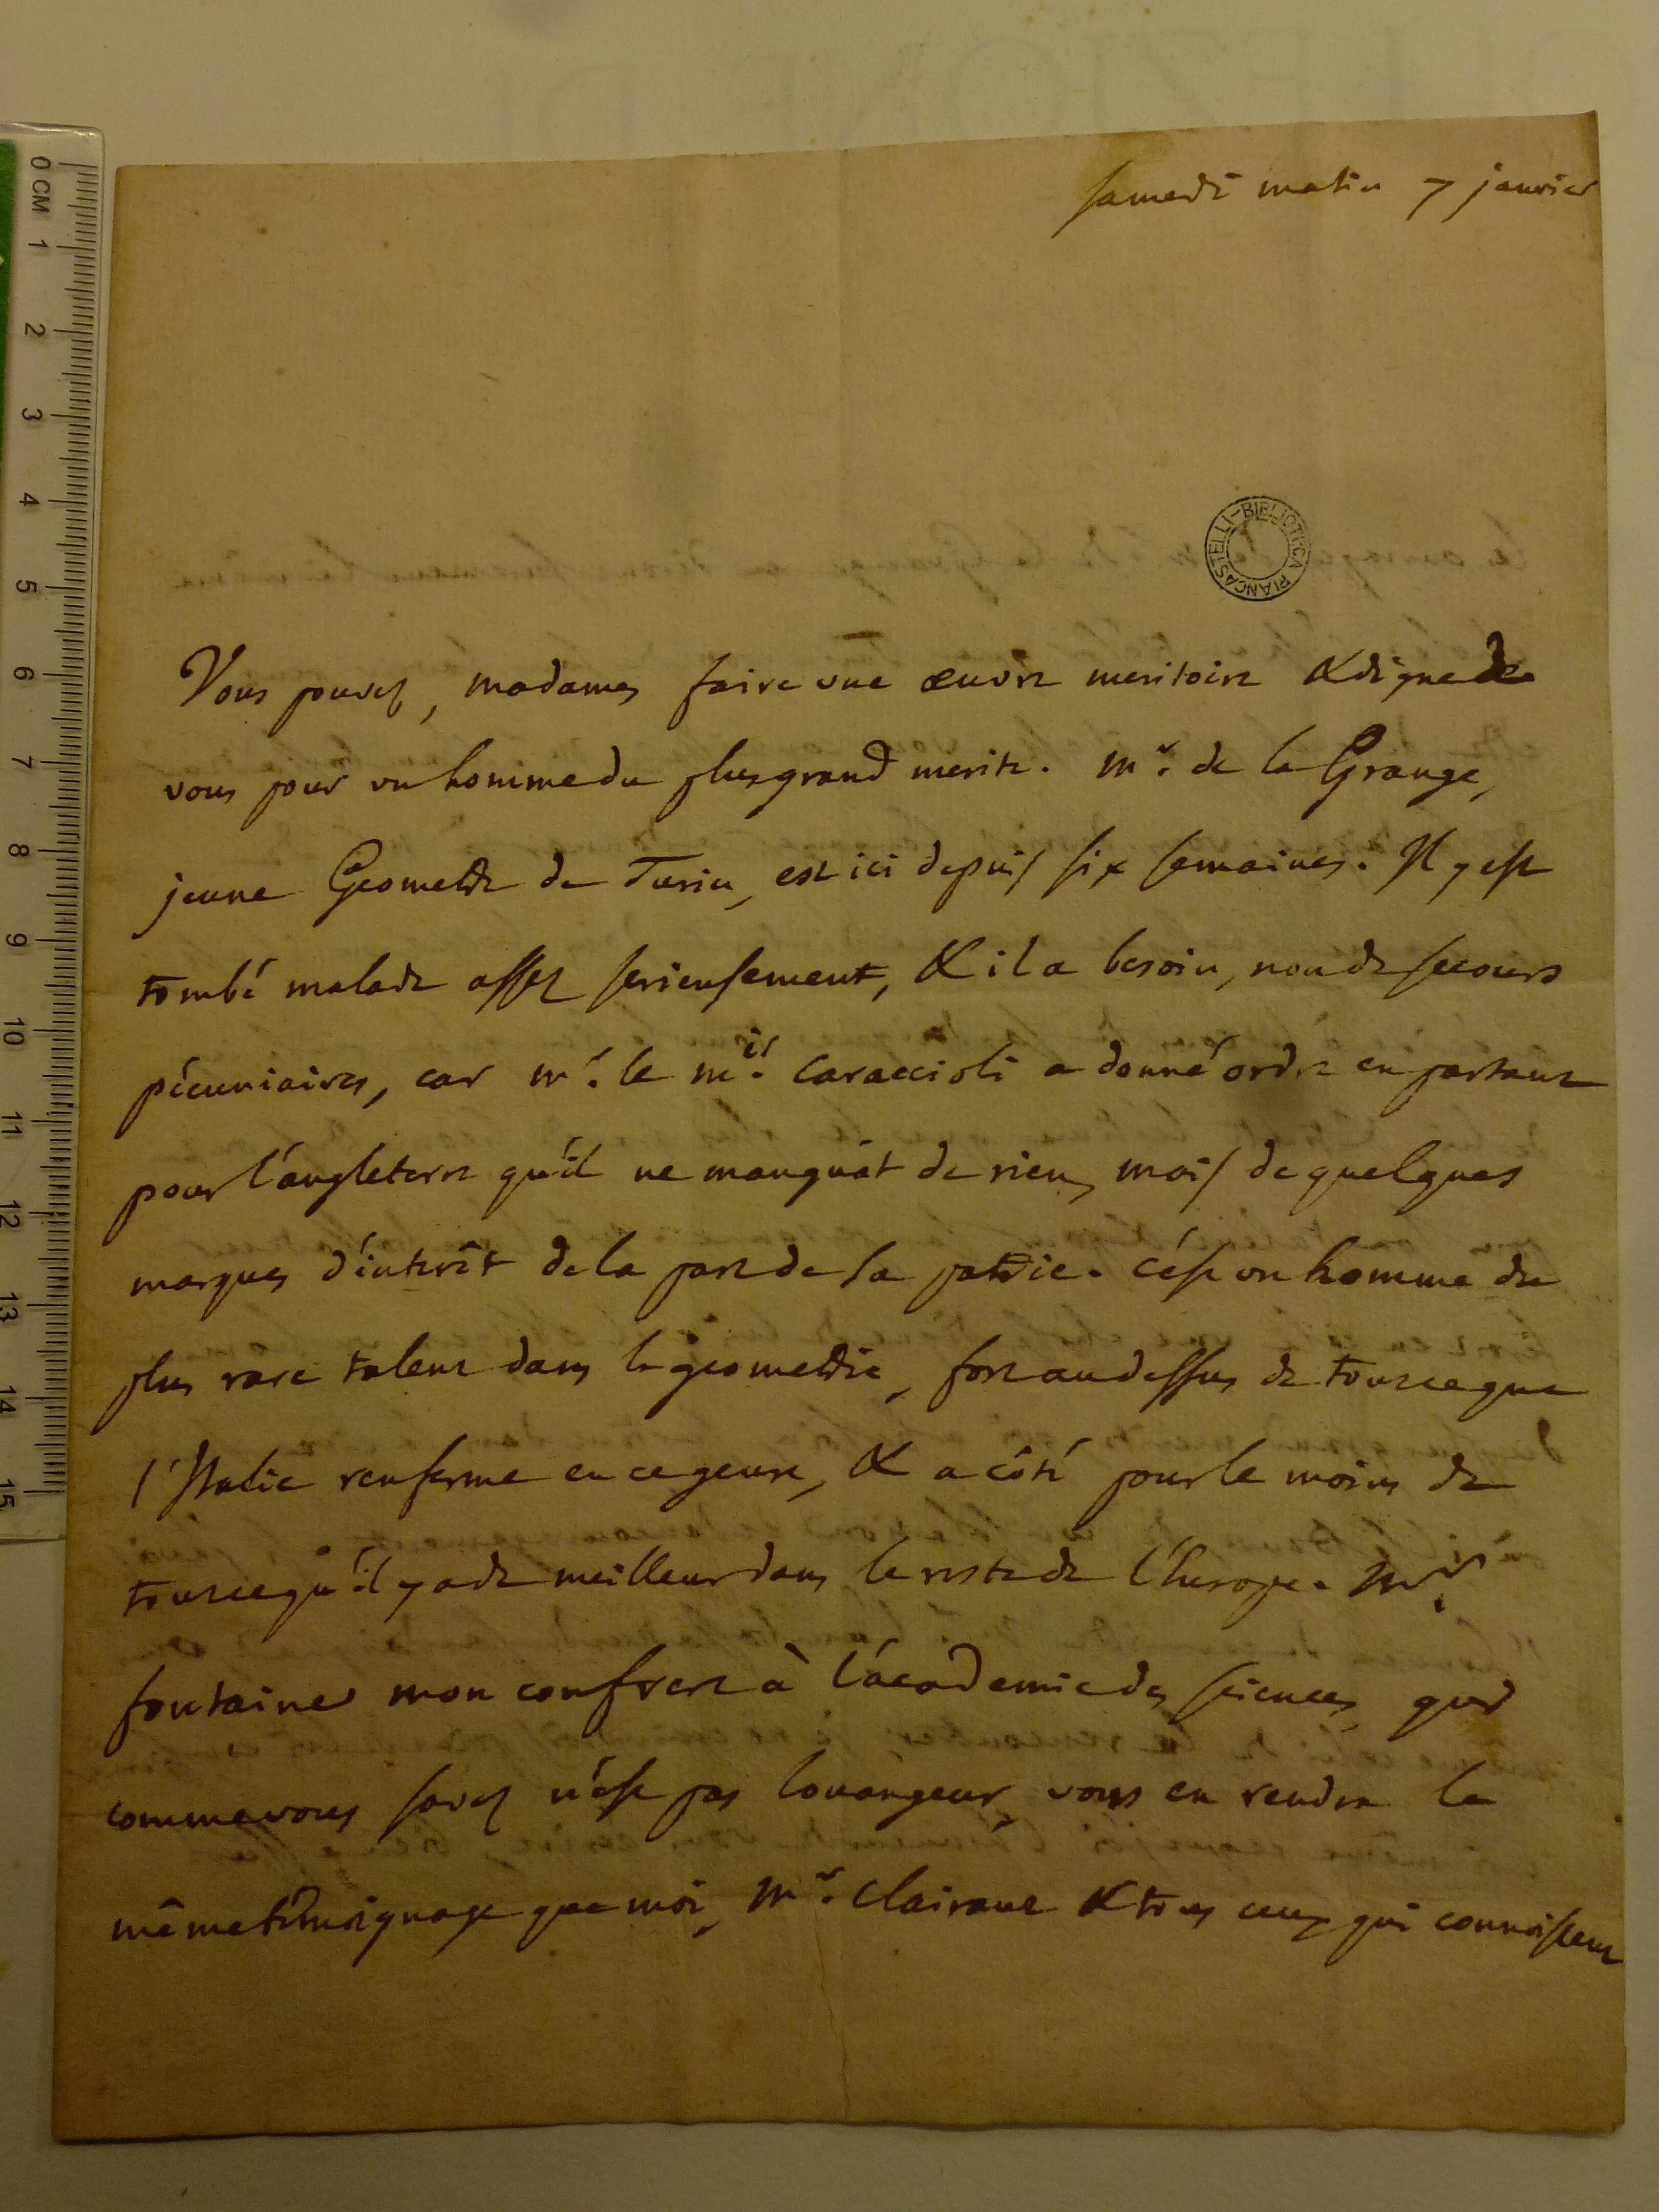 samedi matin 7 janvier
BIBLIOTECA PIANCASTELLI
Vous pouvez, madame, faire une œuvre meritoire & digne de
vous pour un homme du plus grand merite. Mr. de la Grange,
jeune Geometre de Turin, est ici depuis six semaines. Il y est
tombé malade assez serieusement, & il a besoin, non de secours
pécuniaires, car mr. le mis. Caraccioli a donné ordre en partant
pour l'angleterre qu'il ne manquât de rien, mais de quelques
marques d'intérêt de la part de sa patrie. C'est un homme du
plus rare talent dans la geometrie, fort au dessus de tout ce que
l'Italie renferme en ce genre, & a côté pour le moins de
tout ce qu'il y a de meilleur dans le reste de l'Europe. Mr.
fontaine mon confrere à l'académie des sciences, qui
comme vous savez n'est pas louangeur, vous en rendra le
même témoignage que moi, Mr. Clairaut & tous ceux qui connoissent
0 CM 1 2 3 4 5 6 7 8 9 10 11 12 13 14 15